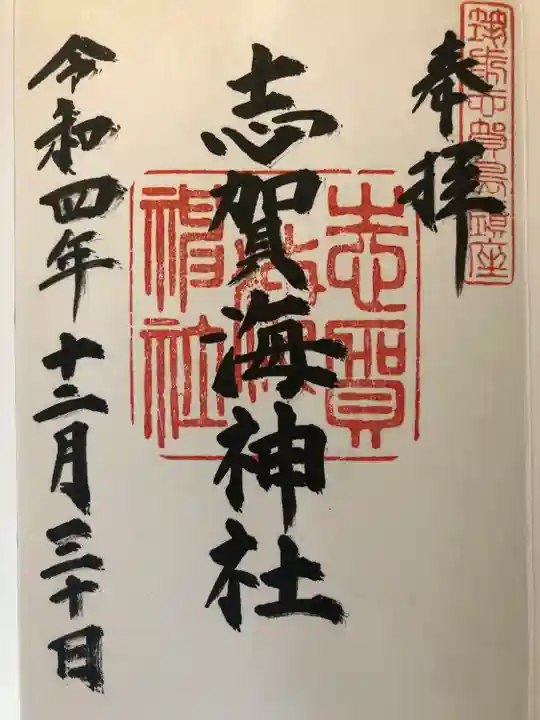 筑前志賀島鎮座
奉拝
志賀海神社
志賀海神社
令和四年十二月三十日